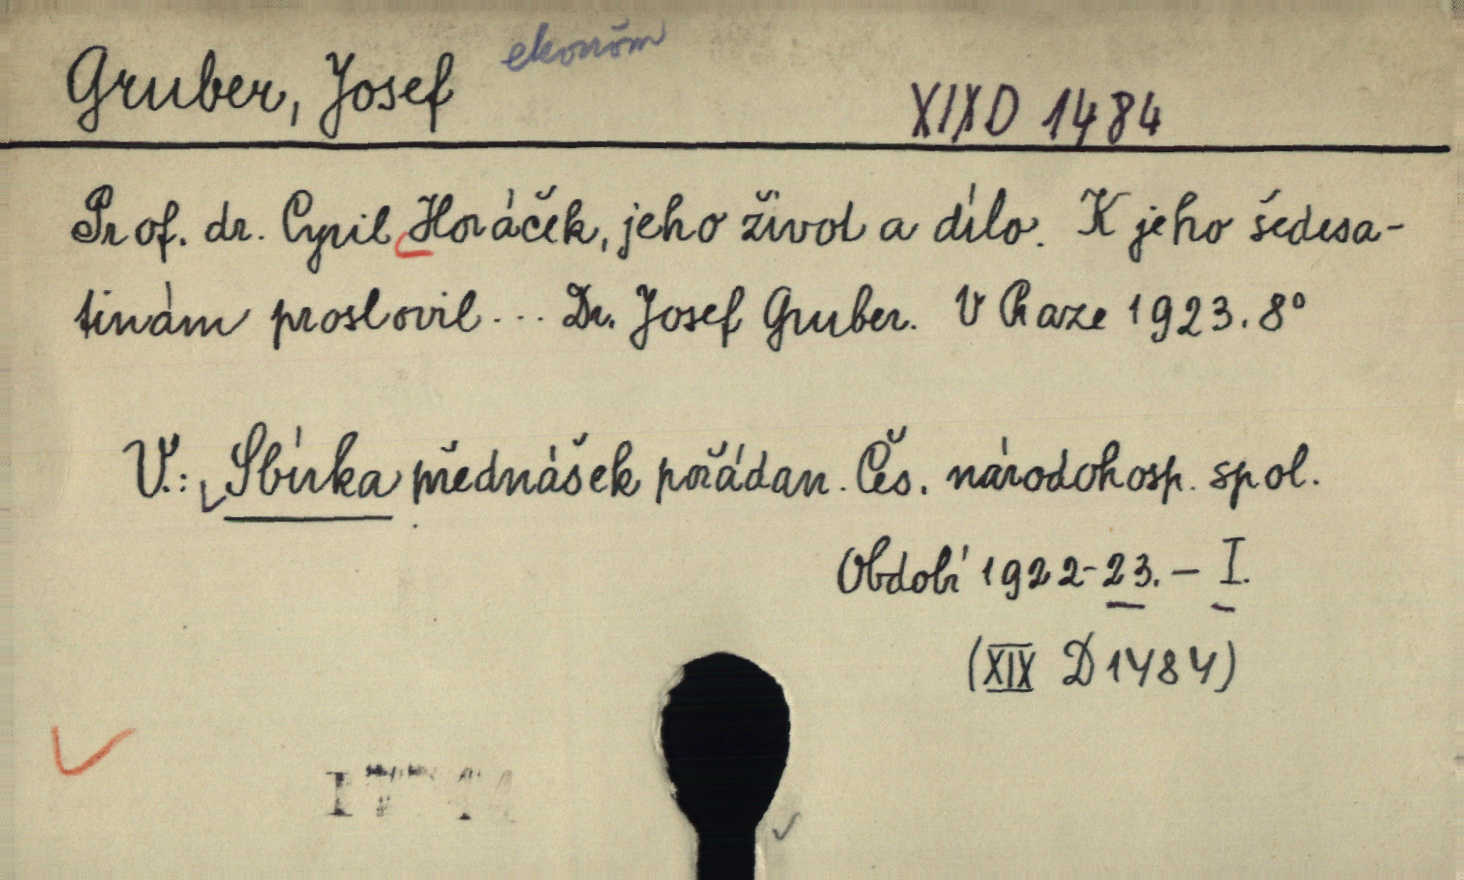 Gruber, Josef ekonóm
XIXD 1484
Prof. dr. Cyril Horáček, jeho život a dílo. K jeho šedesa-
tinám proslovil... Dr. Josef Gruber. V Praze 1923. 8°
V.: Sbírka přednášek pořádan. Čes. národohosp. spol.
Období 1922-23. - I.
(XIX D 1484)